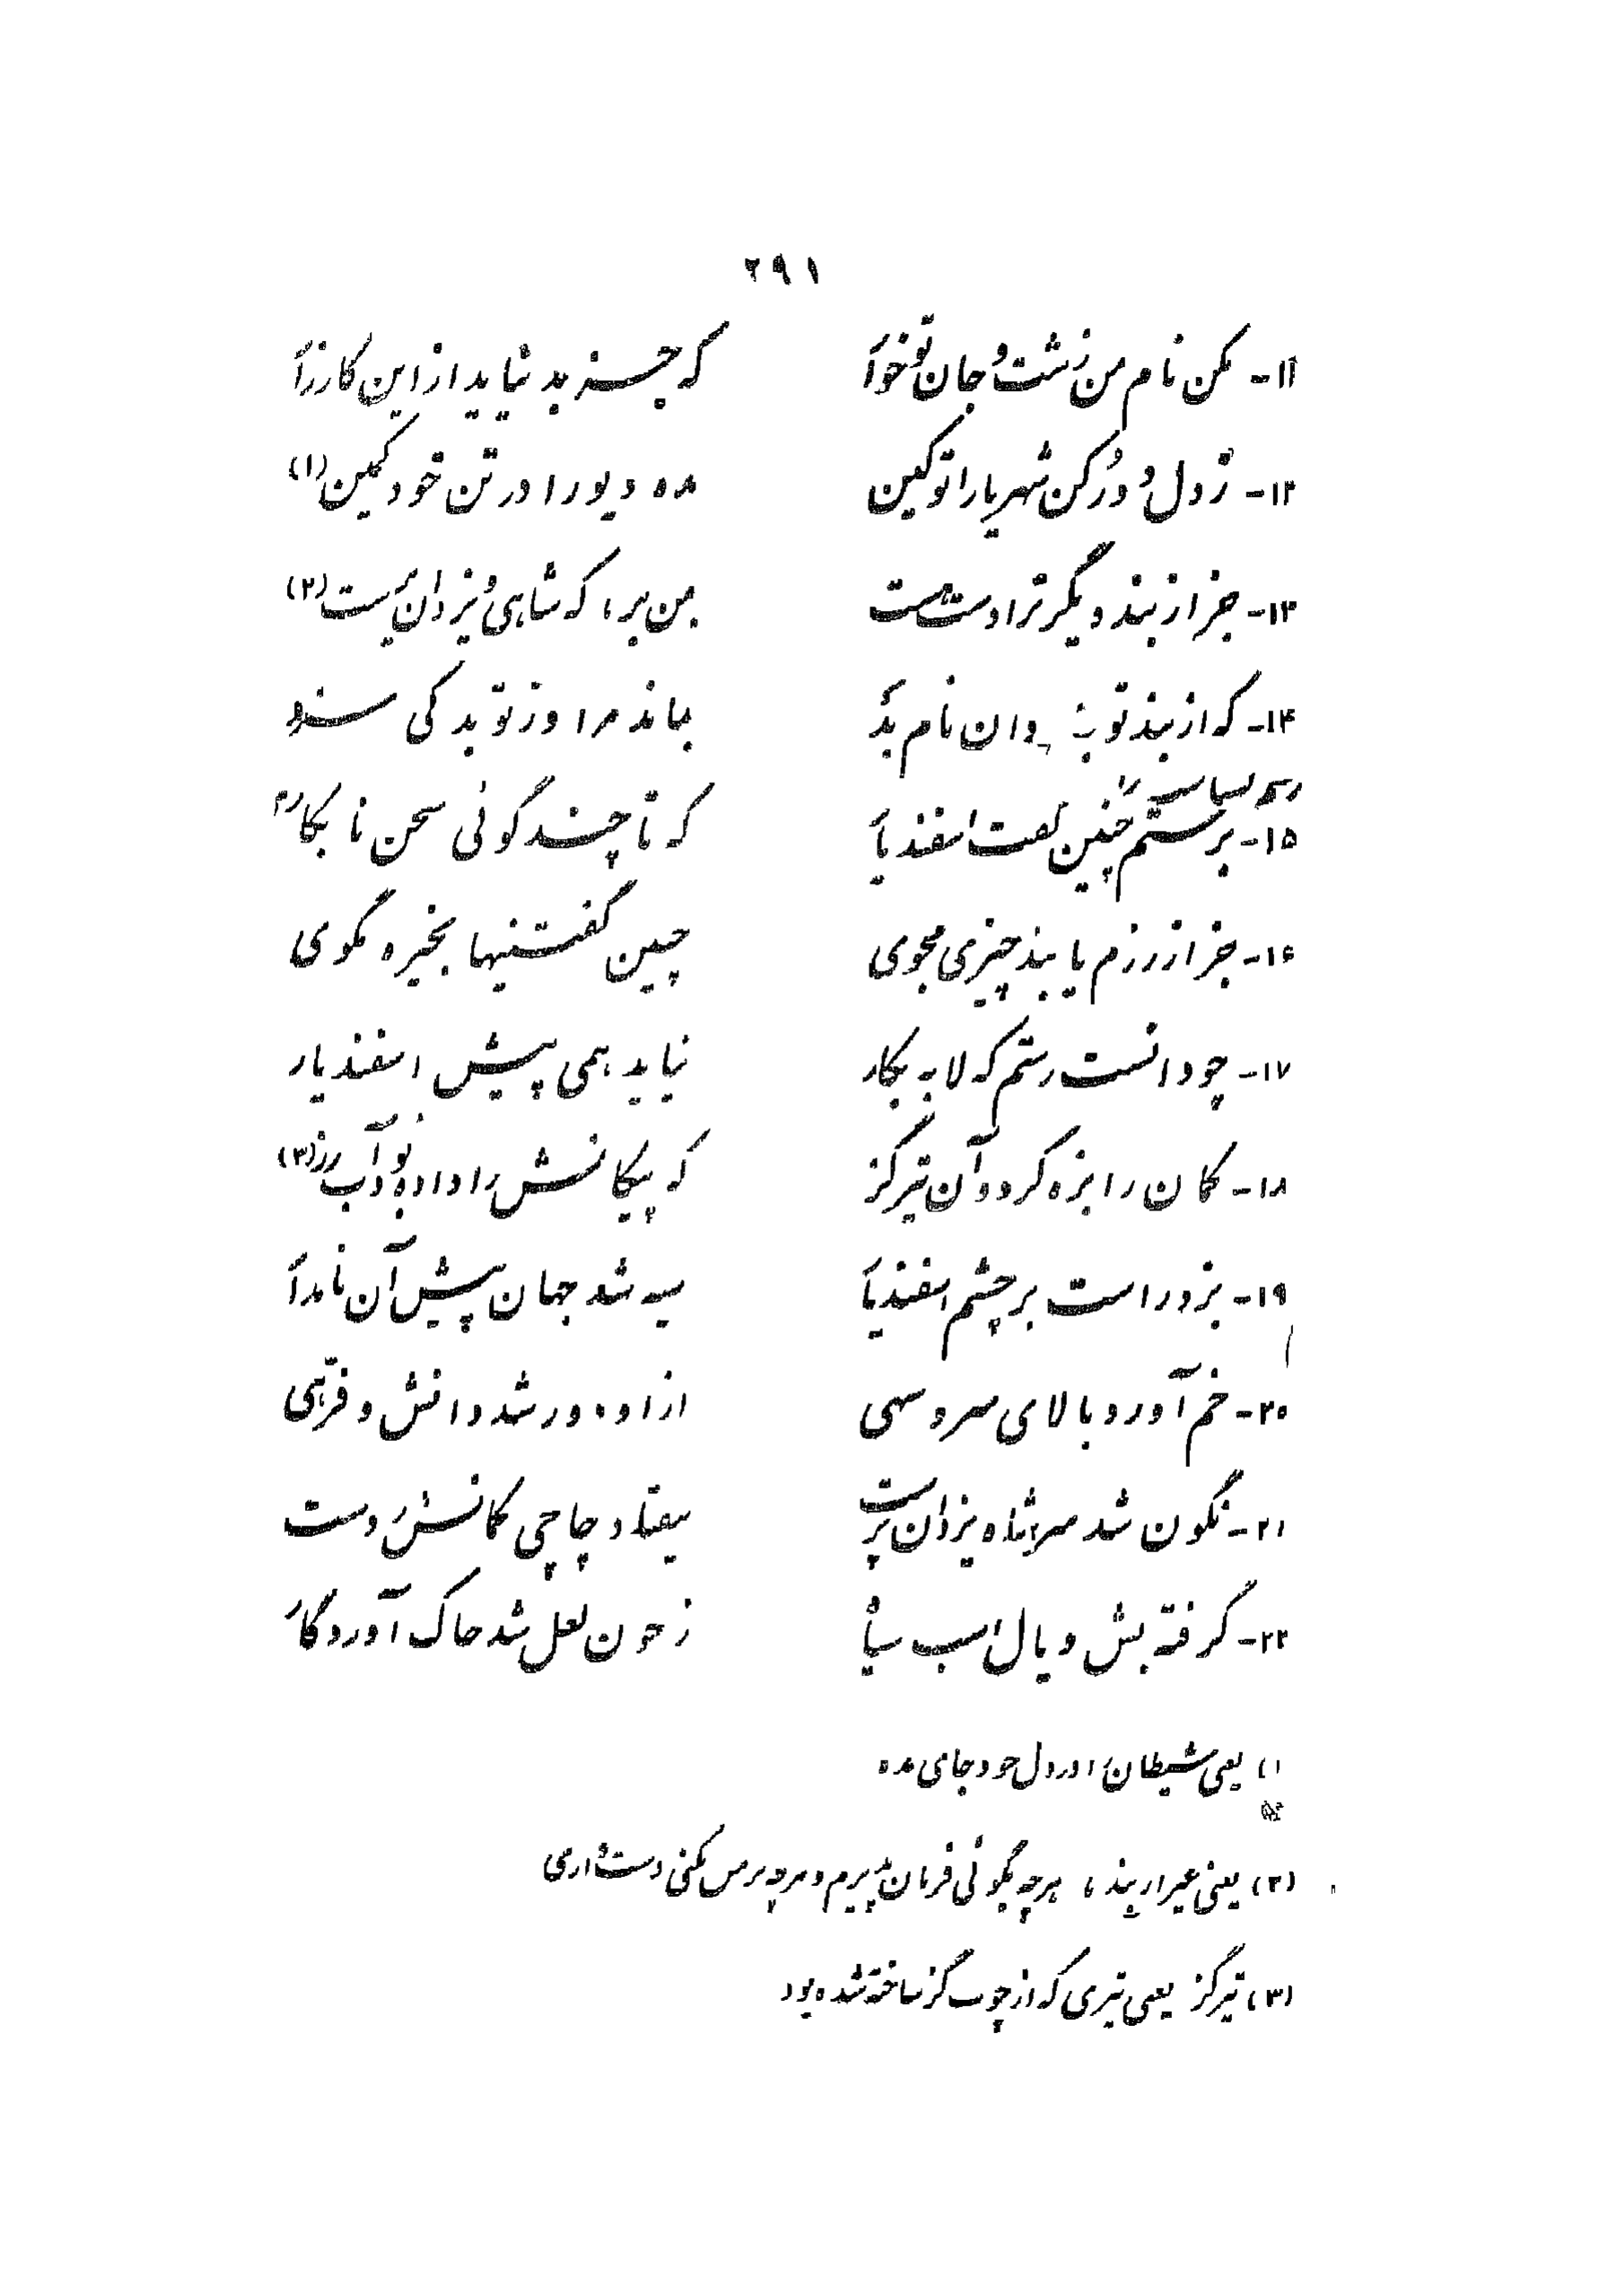 ۲۹۱
۱۱- مکن نام من زشت و جان تو خوار که جز بد نیاید از این کارزار
۱۲- ز دل دور کن شهریارا تو کین مده دیو را در تن خود کمین (۱)
۱۳- جز از بند دیگر ترا دست هست بمن بر، که شاهی و یزدان پرست (۲)
۱۴- که از بند تو تا جاودان نام بد بماند مرا وز تو بد کی سزد
۱۵- برستم چنین گفت اسفندیار که تا چند گوئی سخن نابکار
۱۶- جز از رزم یا بند چیزی مجوی چنین گفتنیها بخیره مگوی
۱۷- چو دانست رستم که لابه بکار نیاید همی پیش اسفندیار
۱۸- کمان را بزه کرد و آن تیر گز که پیکانش را داده بود آب رز (۳)
۱۹- بزد راست بر چشم اسفندیار سیه شد جهان پیش آن نامدار
۲۰- خم آورد بالای سرو سهی از او دور شد دانش و فرهی
۲۱- نگون شد سر شاه یزدان پرست بیفتاد چاچی کمانش ز دست
۲۲- گرفته بش و یال اسب سیاه ز خون لعل شد خاک آوردگاه
۱) یعنی شیطان را در دل خود جای مده
(۲) یعنی غیر از بند، هرچه بگوئی فرمان پذیرم و هرچه بر من بکنی دست داری
(۳) تیر گز یعنی تیری که از چوب گز ساخته شده بود